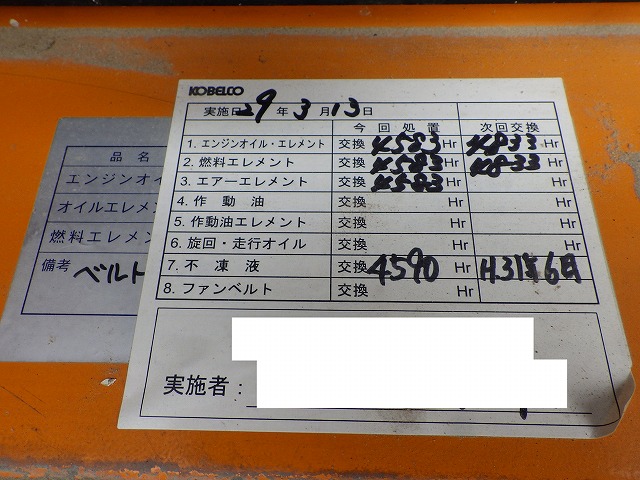 KOBELCO
実施日 29 年 3 月 13 日
今回処置 次回交換
1. エンジンオイル・エレメント 交換 4583 Hr 4833 Hr
2. 燃料エレメント 交換 4583 Hr 4833 Hr
3. エアーエレメント 交換 4583 Hr Hr
4. 作動油 交換 Hr Hr
5. 作動油エレメント 交換 Hr Hr
6. 旋回・走行オイル 交換 Hr Hr
7. 不凍液 交換 4590 Hr H31年6月
8. ファンベルト 交換 Hr Hr
実施者:
品名
エンジンオイ
オイルエレメ
燃料エレメン
備考 ベルト